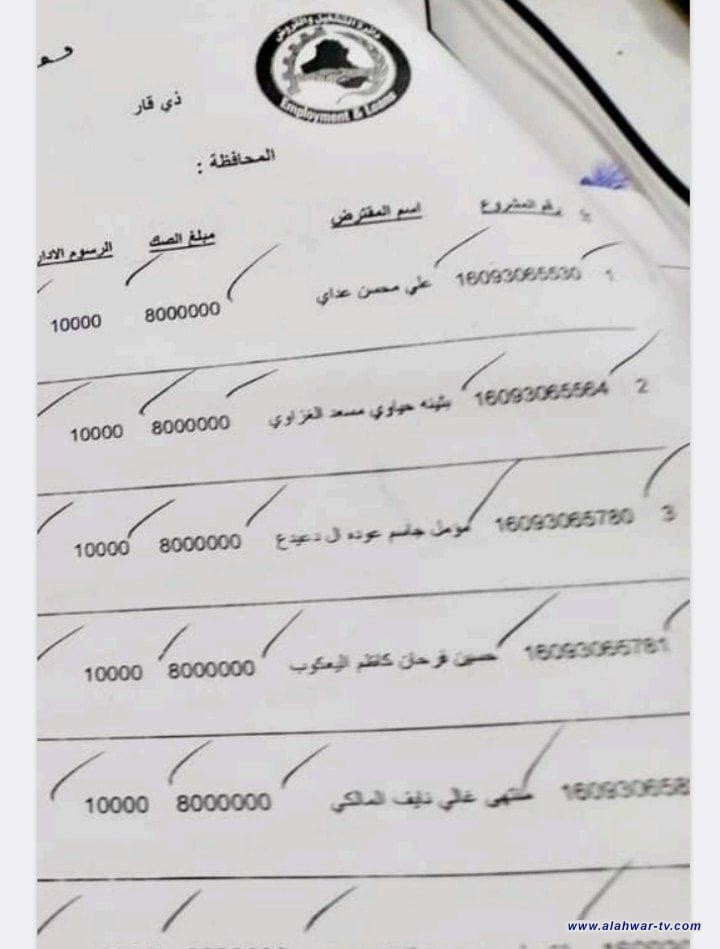 دائرة التشغيل والقروض
Employment & Loans
ذي قار
المحافظة :
رقم المشروع اسم المقترض مبلغ الصك الرسوم الادار
1 16093065530 علي محسن عداي 8000000 10000
2 16093065564 بثينه حياوي مسعد الغزاوي 8000000 10000
3 16093065780 مؤمل جاسم عوده ال دعيدع 8000000 10000
16093065781 حسين فرحان كاظم اليعكوب 8000000 10000
160930658 منتهى غالي نايف المالكي 8000000 10000
www.alahwar-tv.com